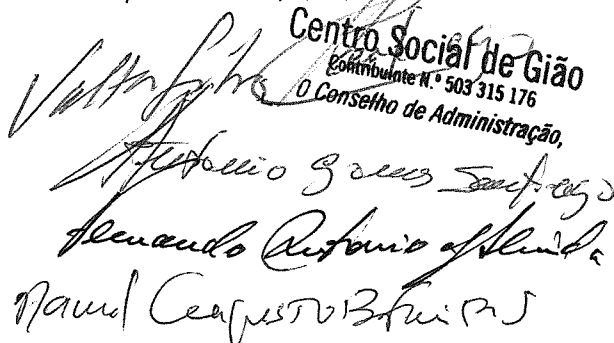 Centro Social de Gião
Contribuinte N.º 503 315 176
O Conselho de Administração,
António Gomes Santiago
Fernando António Almeida
Manuel Augusto